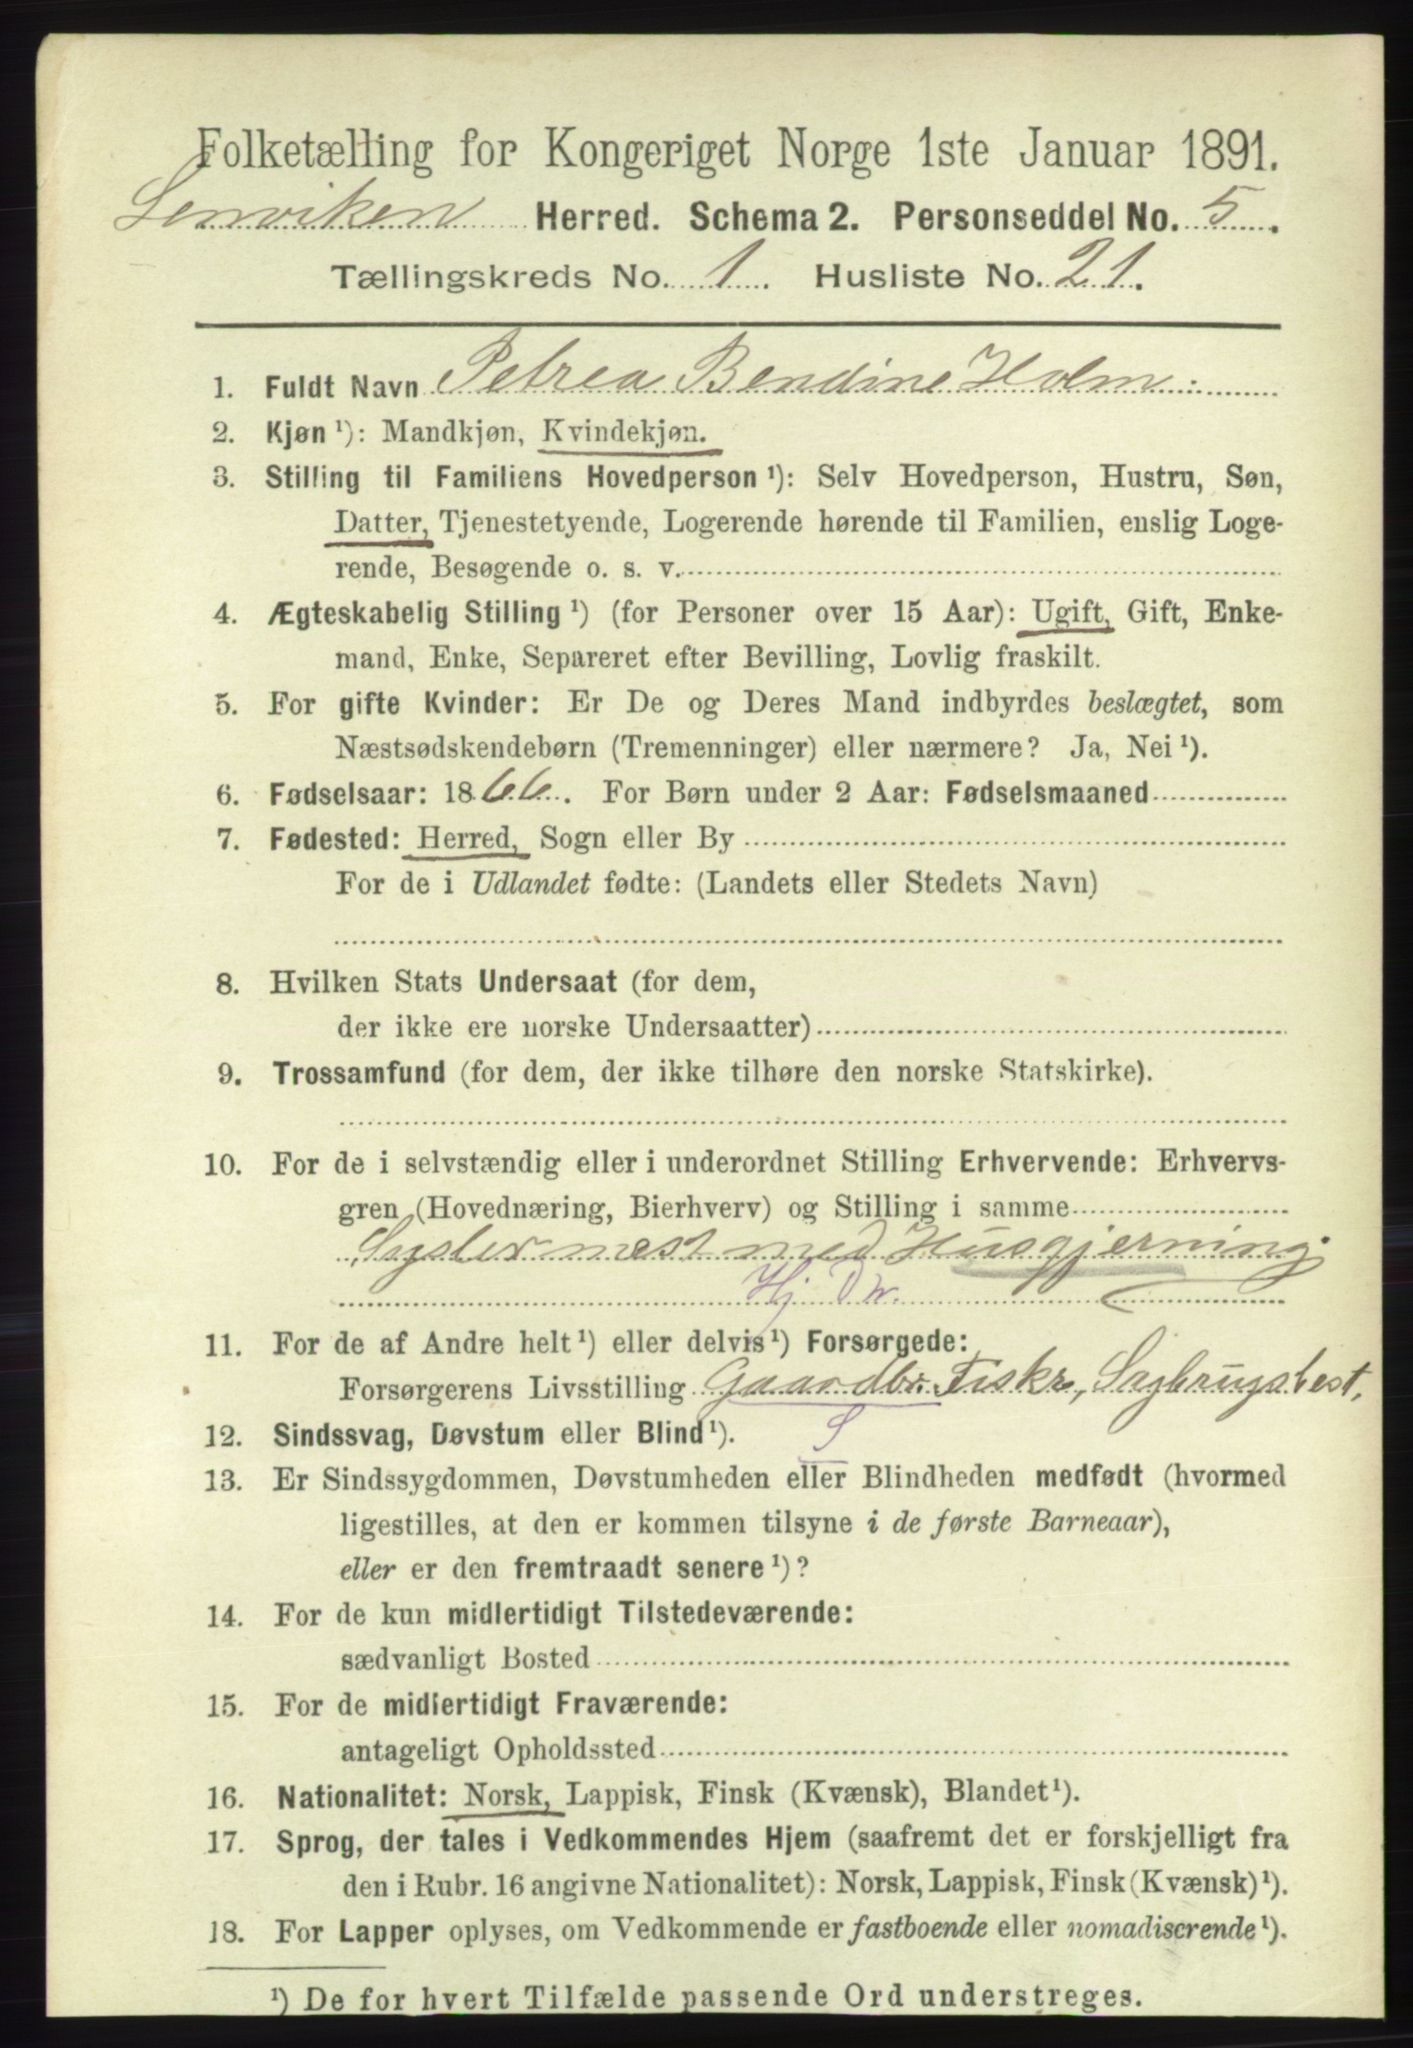 Folketælling for Kongeriget Norge 1ste Januar 1891.
Lenviken Herred. Schema 2. Personseddel No. 5.
Tællingskreds No. 1. Husliste No. 21.
1. Fuldt Navn Petrea Bendine Holm.
2. Kjøn ¹): Mandkjøn, Kvindekjøn.
3. Stilling til Familiens Hovedperson ¹): Selv Hovedperson, Hustru, Søn,
Datter, Tjenestetyende, Logerende hørende til Familien, enslig Loge-
rende, Besøgende o. s. v.
4. Ægteskabelig Stilling ¹) (for Personer over 15 Aar): Ugift, Gift, Enke-
mand, Enke, Separeret efter Bevilling, Lovlig fraskilt.
5. For gifte Kvinder: Er De og Deres Mand indbyrdes beslægtet, som
Næstsødskendebørn (Tremenninger) eller nærmere? Ja, Nei ¹).
6. Fødselsaar: 1866. For Børn under 2 Aar: Fødselsmaaned
7. Fødested: Herred, Sogn eller By
For de i Udlandet fødte: (Landets eller Stedets Navn)
8. Hvilken Stats Undersaat (for dem,
der ikke ere norske Undersaatter)
9. Trossamfund (for dem, der ikke tilhøre den norske Statskirke).
10. For de i selvstændig eller i underordnet Stilling Erhvervende: Erhvervs-
gren (Hovednæring, Bierhverv) og Stilling i samme
Sysler mest med Husgjerning.
Hj Dr.
11. For de af Andre helt ¹) eller delvis ¹) Forsørgede:
Forsørgerens Livsstilling Gaardbr. Fiskr, Sagbrugsbest.
12. Sindssvag, Døvstum eller Blind ¹). S
13. Er Sindssygdommen, Døvstumheden eller Blindheden medfødt (hvormed
ligestilles, at den er kommen tilsyne i de første Barneaar),
eller er den fremtraadt senere ¹)?
14. For de kun midlertidigt Tilstedeværende:
sædvanligt Bosted
15. For de midlertidigt Fraværende:
antageligt Opholdssted
16. Nationalitet: Norsk, Lappisk, Finsk (Kvænsk), Blandet ¹).
17. Sprog, der tales i Vedkommendes Hjem (saafremt det er forskjelligt fra
den i Rubr. 16 angivne Nationalitet): Norsk, Lappisk, Finsk (Kvænsk) ¹).
18. For Lapper oplyses, om Vedkommende er fastboende eller nomadiserende ¹).
¹) De for hvert Tilfælde passende Ord understreges.